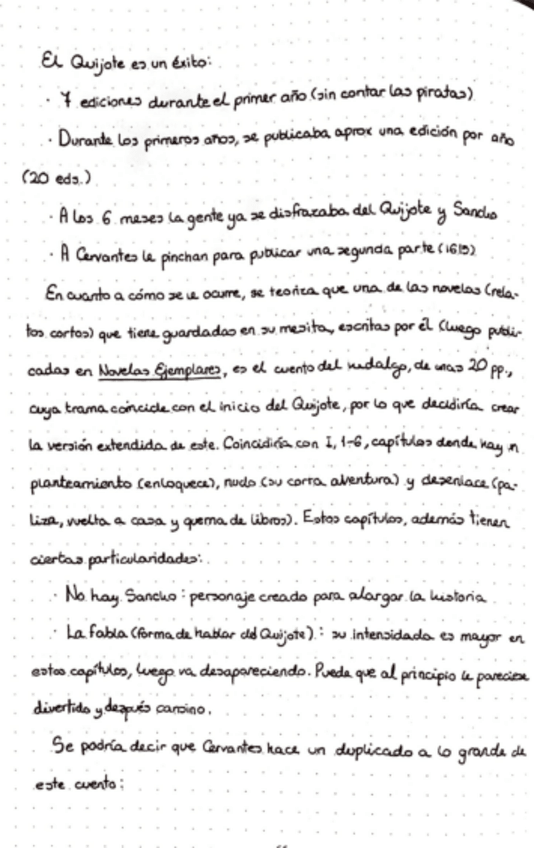 El Quijote es un éxito:
· 7 ediciones durante el primer año (sin contar las piratas)
· Durante los primeros años, se publicaba aprox una edición por año
(20 eds.)
· A los 6 meses la gente ya se disfrazaba del Quijote y Sancho
· A Cervantes le pinchan para publicar una segunda parte (1615)
En cuanto a cómo se le ocurre, se teoriza que una de las novelas (rela-
tos cortos) que tiene guardadas en su mesita, escritas por él (luego publi-
cadas en Novelas Ejemplares, es el cuento del hidalgo, de unas 20 pp.,
cuya trama coincide con el inicio del Quijote, por lo que decidiría crear
la versión extendida de este. Coincidiría con I, 1-6, capítulos donde hay n
planteamiento (enloquece), nudo (su corta aventura) y desenlace (pa-
liza, vuelta a casa y quema de libros). Estos capítulos, además tienen
ciertas particularidades:
· No hay Sancho: personaje creado para alargar la historia
· La fabla (forma de hablar del Quijote): su intensidad es mayor en
estos capítulos, luego va desapareciendo. Puede que al principio le pareciese
divertido y después cansino.
Se podría decir que Cervantes hace un duplicado a lo grande de
este cuento: